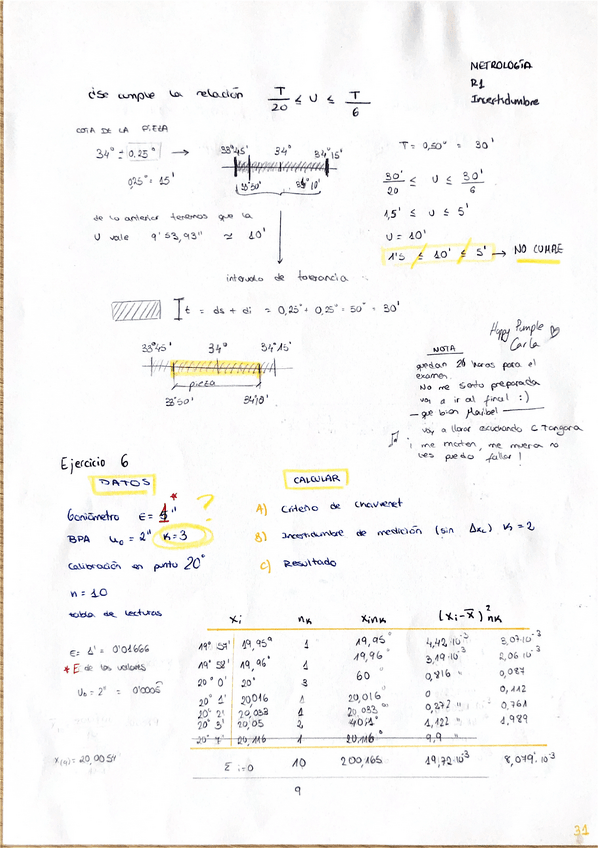 METROLOGÍA
R1
Incertidumbre
¿Se cumple la relación T/20 ≤ U ≤ T/6
COTA DE LA PIEZA
34° ± 0,25° →
0,25° = 15'
33°45' 34° 34°15'
33°50' 34°10'
T = 0,50° = 30'
30'/20 ≤ U ≤ 30'/6
1,5' ≤ U ≤ 5'
U = 10'
1'5 ≤ 10' ≤ 5' → NO CUMPLE
de lo anterior tenemos que la
U vale 9' 53,93" ≃ 10'
intervalo de tolerancia
t = ds + di = 0,25° + 0,25° = 50° = 30'
33°45' 34° 34°15'
pieza
33°50' 34°10'
Happy Pumple
Carla
NOTA
quedan 20 horas para el
examen.
No me siento preparada
voy a ir al final :)
- que bien Maribel
voy a llorar escuchando C. Tangana
i me maten, me muera no
les puedo fallar!
Ejercicio 6
DATOS
CALCULAR
Goniómetro E = 1" ?
BPA u₀ = 2" K=3
Calibración en punto 20°
n = 10
tabla de lecturas
A) Criterio de Chauvenet
B) Incertidumbre de medición (sin Δxc) K = 2
C) Resultado
E = 1' = 0'01666
* E de los valores
U₀ = 2" = 0'0006
X(9) = 20,0054
xi nk xink (xi-x̄)² nk
19° 57' 19,95° 1 19,95° 4,42·10⁻³ 3,07·10⁻³
19° 58' 19,96° 1 19,96° 3,19·10⁻³ 2,06·10⁻³
20° 0' 20° 3 60° 0,816 " 0,087
20° 1' 20,016 1 20,016° 0 0,112
20° 2' 20,033 1 20,033 0,272 " 0,761
20° 3' 20,05 2 40,1° 1,122 " 1,989
20° 7' 20,116 1 20,116° 9,9 "
Σ i=0 10 200,165 19,72·10⁻³ 8,079·10⁻³
9
31